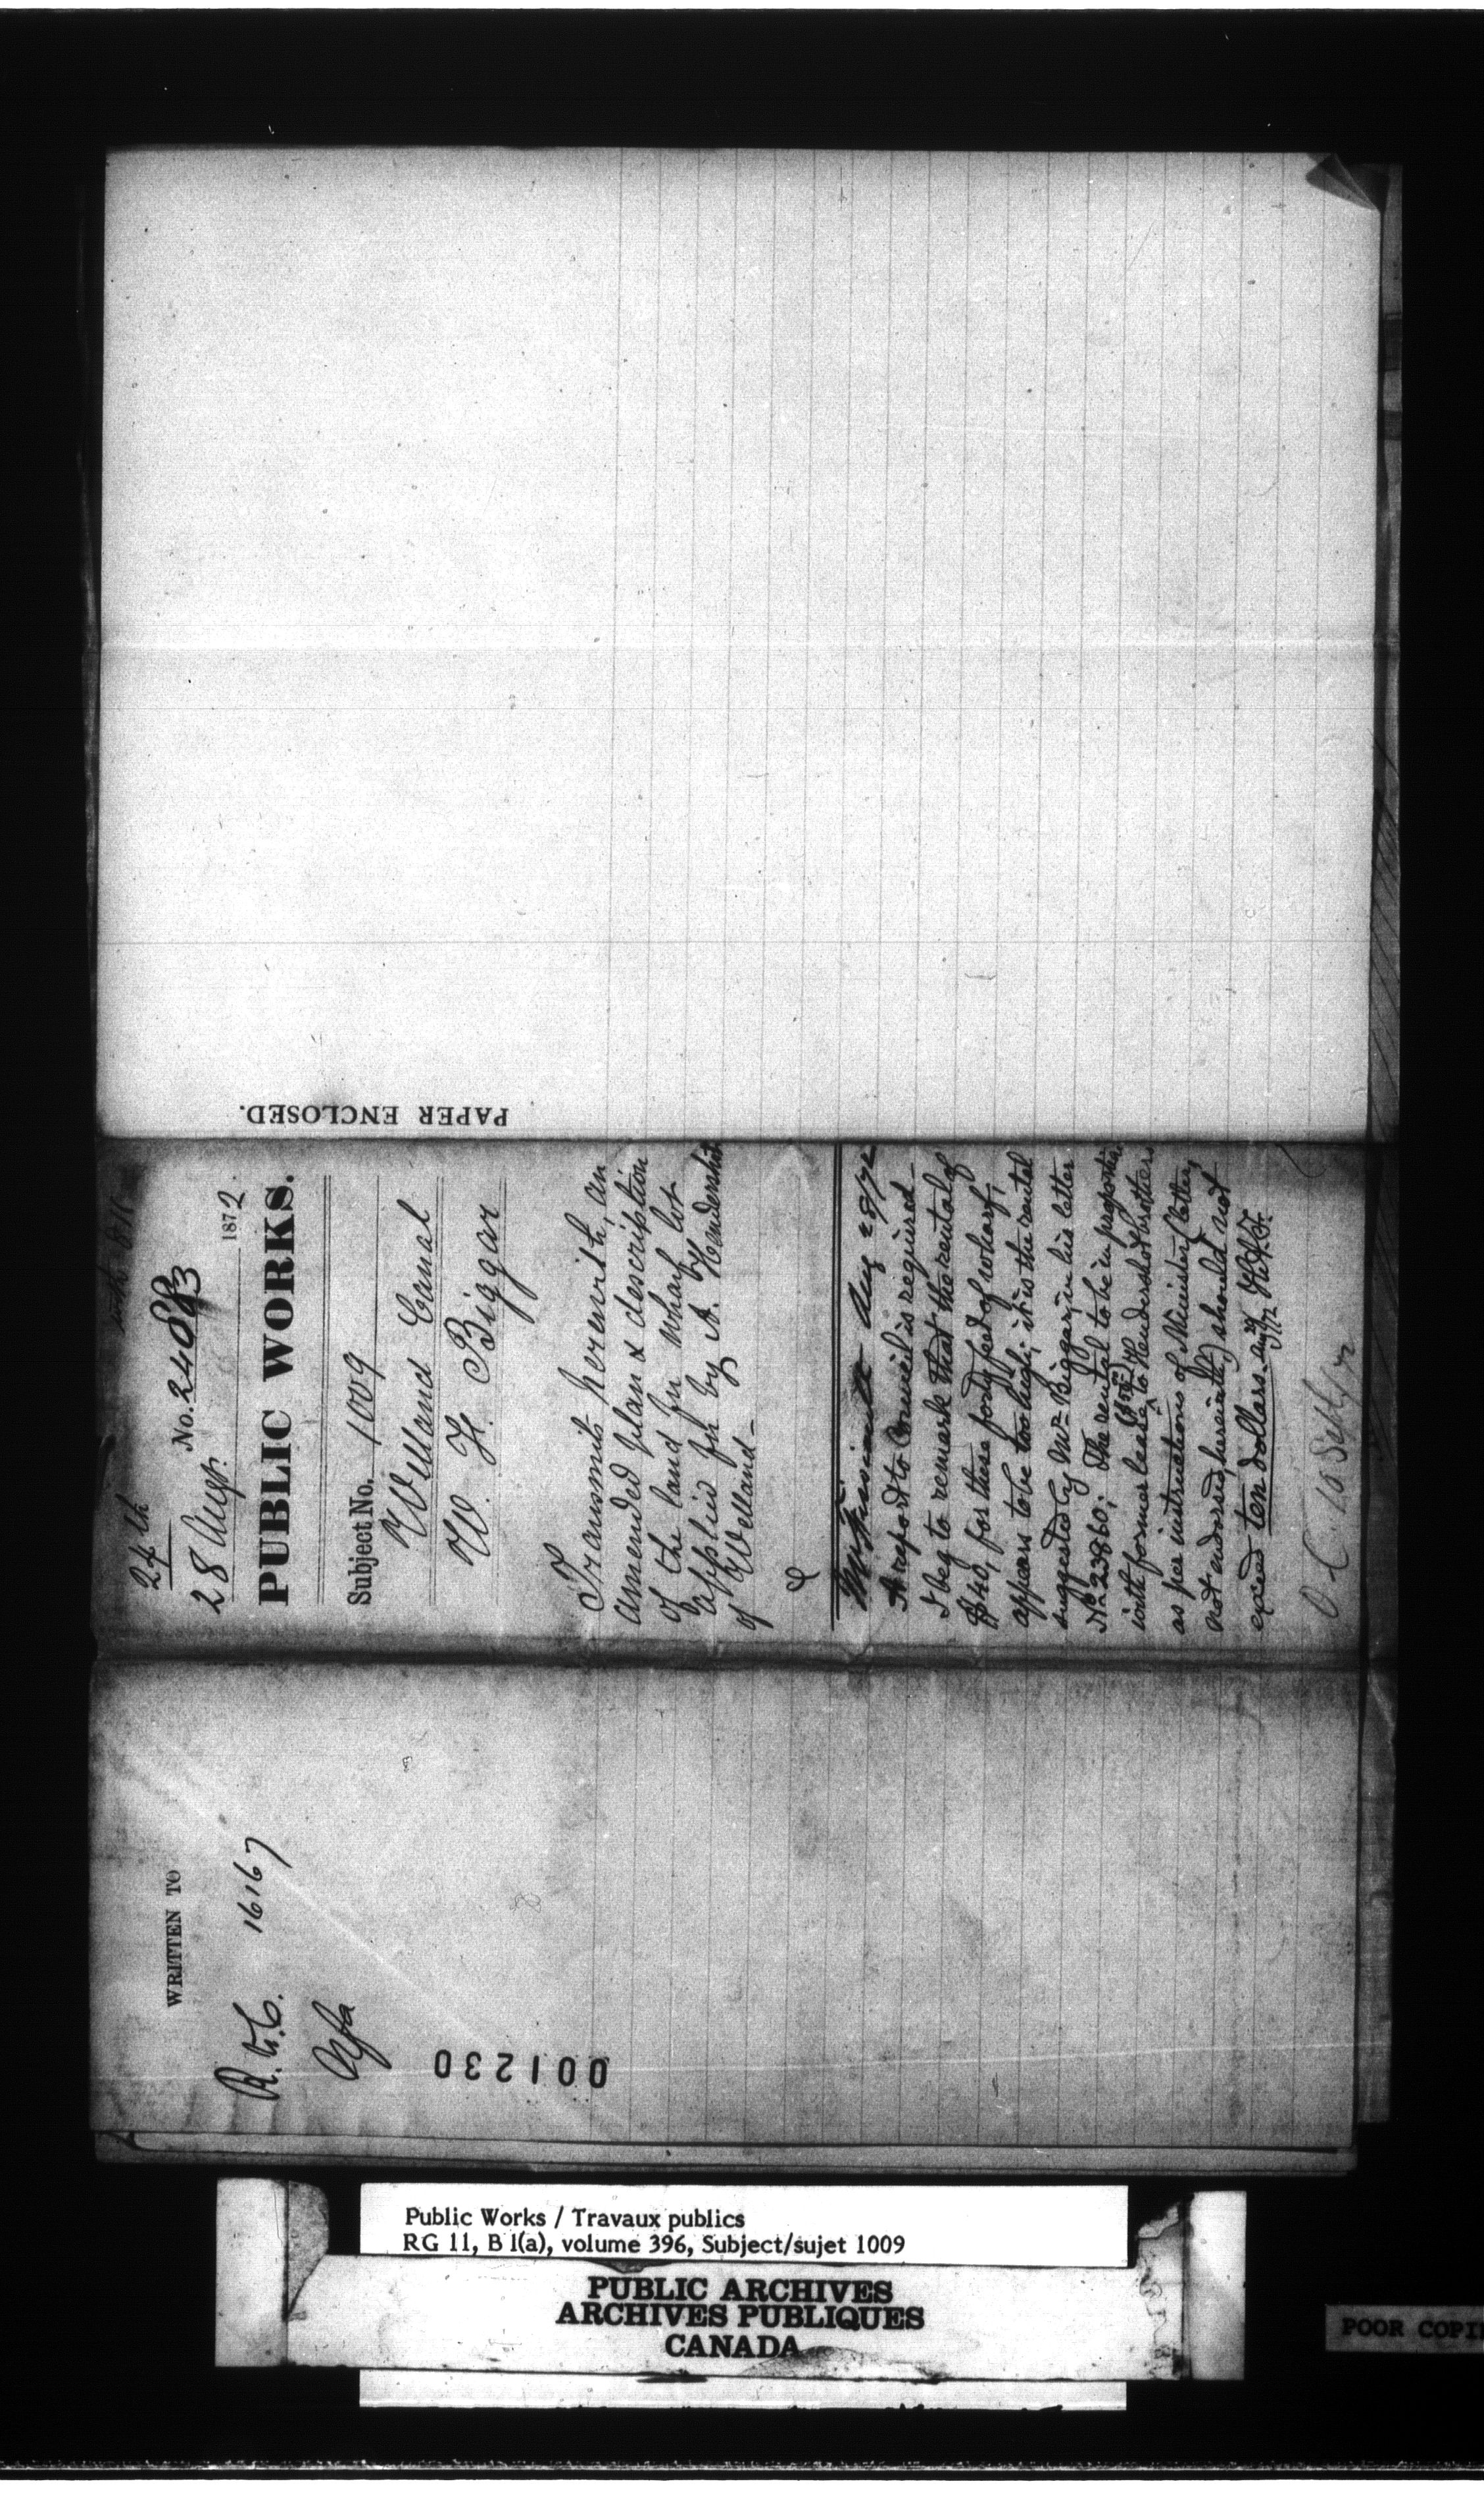 24th
No. 24083
28 Augt. 1872
PUBLIC WORKS.
Subject No. 1009
Welland Canal
W. H. Biggar
Transmits herewith, an
amended plan & description
of the land for wharf lot
applied for by A. Hendershot
of Welland—
Aug 28/72
A report to Council is required—
I beg to remark that the rental of
$40, for these forty feet of wharf,
appears to be too high; it is the rental
suggested by Mr. Biggar in his letter
No 23860; The rental to be in proportion
with former lease to Hendershot brothers
as per instructions of Minister (letter
not endorsed, herewith) should not
exceed ten dollars. Aug 29/72
O.C. 10 Sept/72
PAPER ENCLOSED.
WRITTEN TO
16167
001230
Public Works / Travaux publics
RG 11, B 1(a), volume 396, Subject/sujet 1009
PUBLIC ARCHIVES
ARCHIVES PUBLIQUES
CANADA
POOR COPI